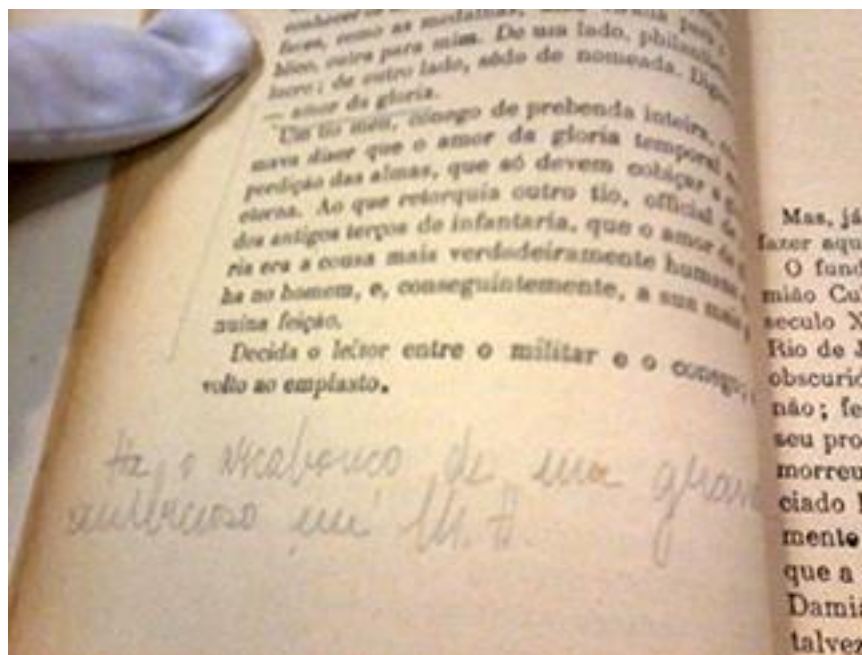 conhecer os
faces, como as medalhas, uma virada para
blico, outra para mim. De um lado, philan
lucro; de outro lado, sêde de nomeada. Dig
— amor da gloria.
Um tio meu, conego de prebenda inteira,
mava dizer que o amor da gloria temporal
perdição das almas, que só devem cobiçar a
eterna. Ao que retorquia outro tio, official
dos antigos terços de infantaria, que o amor da
ria era a cousa mais verdadeiramente humana
ha no homem, e, conseguintemente, a sua mais
nuina feição.
Decida o leitor entre o militar e o conego;
volto ao emplasto.
Ha o arcabouco de um gran
em M. A.
Mas, já
fazer aqu
O fund
mião Cu
seculo X
Rio de J
obscurid
não; fe
seu pro
morreu
ciado
mente
que a
Damiã
talvez